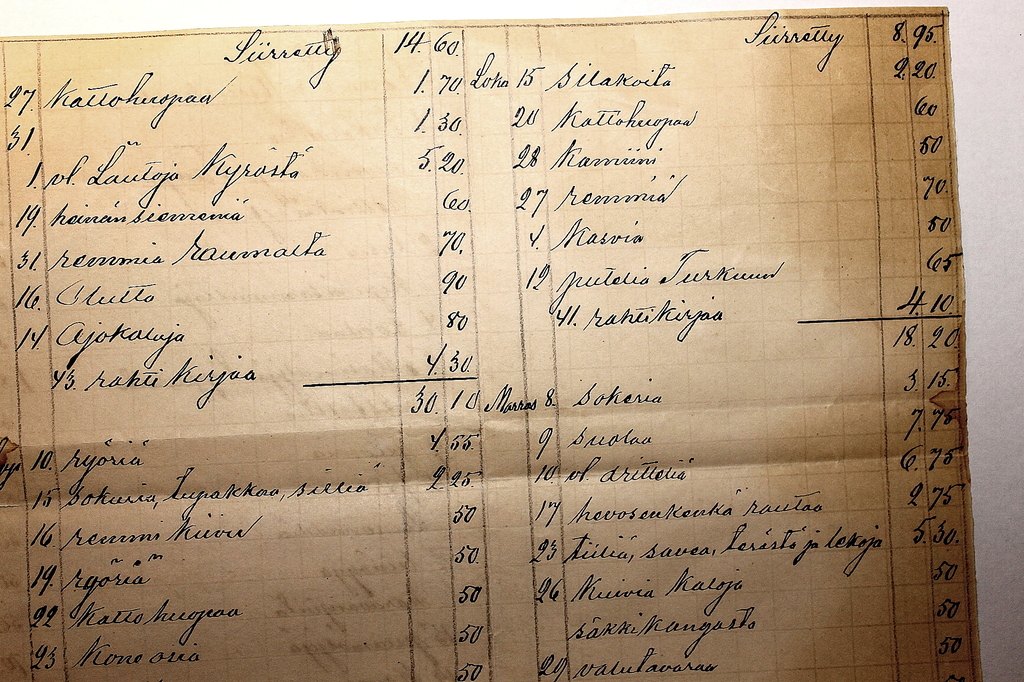 Siirretty 14 60.
27. Kattohuopaa 1. 70
31 1. 30.
1. vl. Lautoja Kyröstä 5. 20.
19. heinänsiemeniä 60.
31. remmiä Raumalta 70.
16. Olutta 90
14 Ajokaluja 80
43. rahtikirjaa 4. 30
30. 10
10. ryöriä 4. 55.
15 sokuria, tupakkaa, silliä 2 25.
16 remmi 50
19. ryöriä 50.
22 Kattohuopaa 50
23 Kone osia 50
50
Siirretty 8. 95.
Loka 15 silakoita 2. 20.
20 Kattohuopaa 60
28 Kamiini 50
27 remmiä 70.
4. Kasvia 50
12 puteliä Turkuun 65
41. rahtikirjaa 4. 10
18. 20
Marras 8. sokeria 3 15.
9 suolaa 7. 75
10 vl. dritteliä 6. 75
17 hevosenkenkä rautaa 2 75
23 tiiliä, savea, terästä ja lekoja 5. 30.
26 Kuivia Kaloja 50
säkkikangasta 50
29 valutavaraa 50